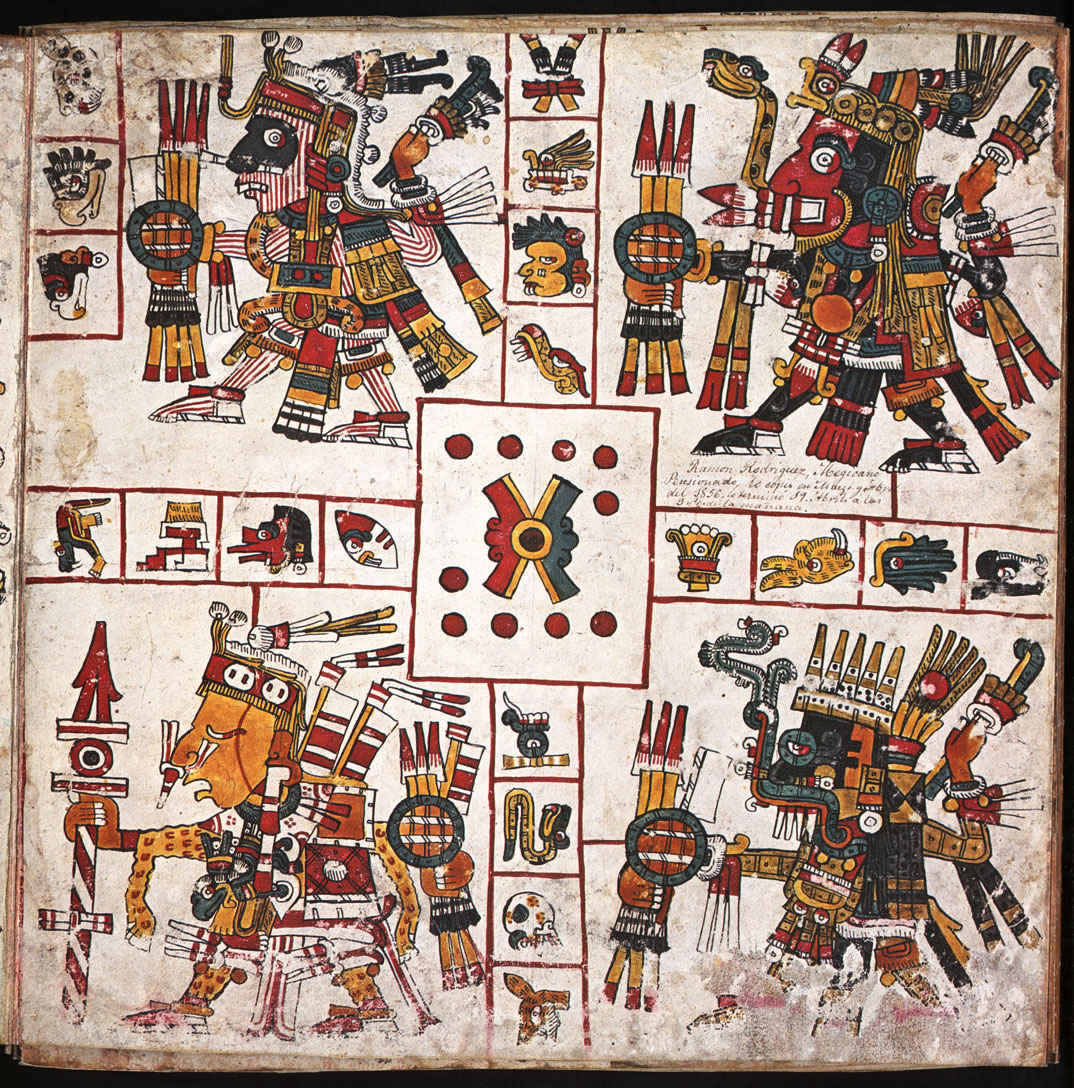 Ramon Rodriguez, Megicano
Pensionado, lo copió en Marzo y Abril
del 1856, lo terminó 19. Abril a las
de la mañana.